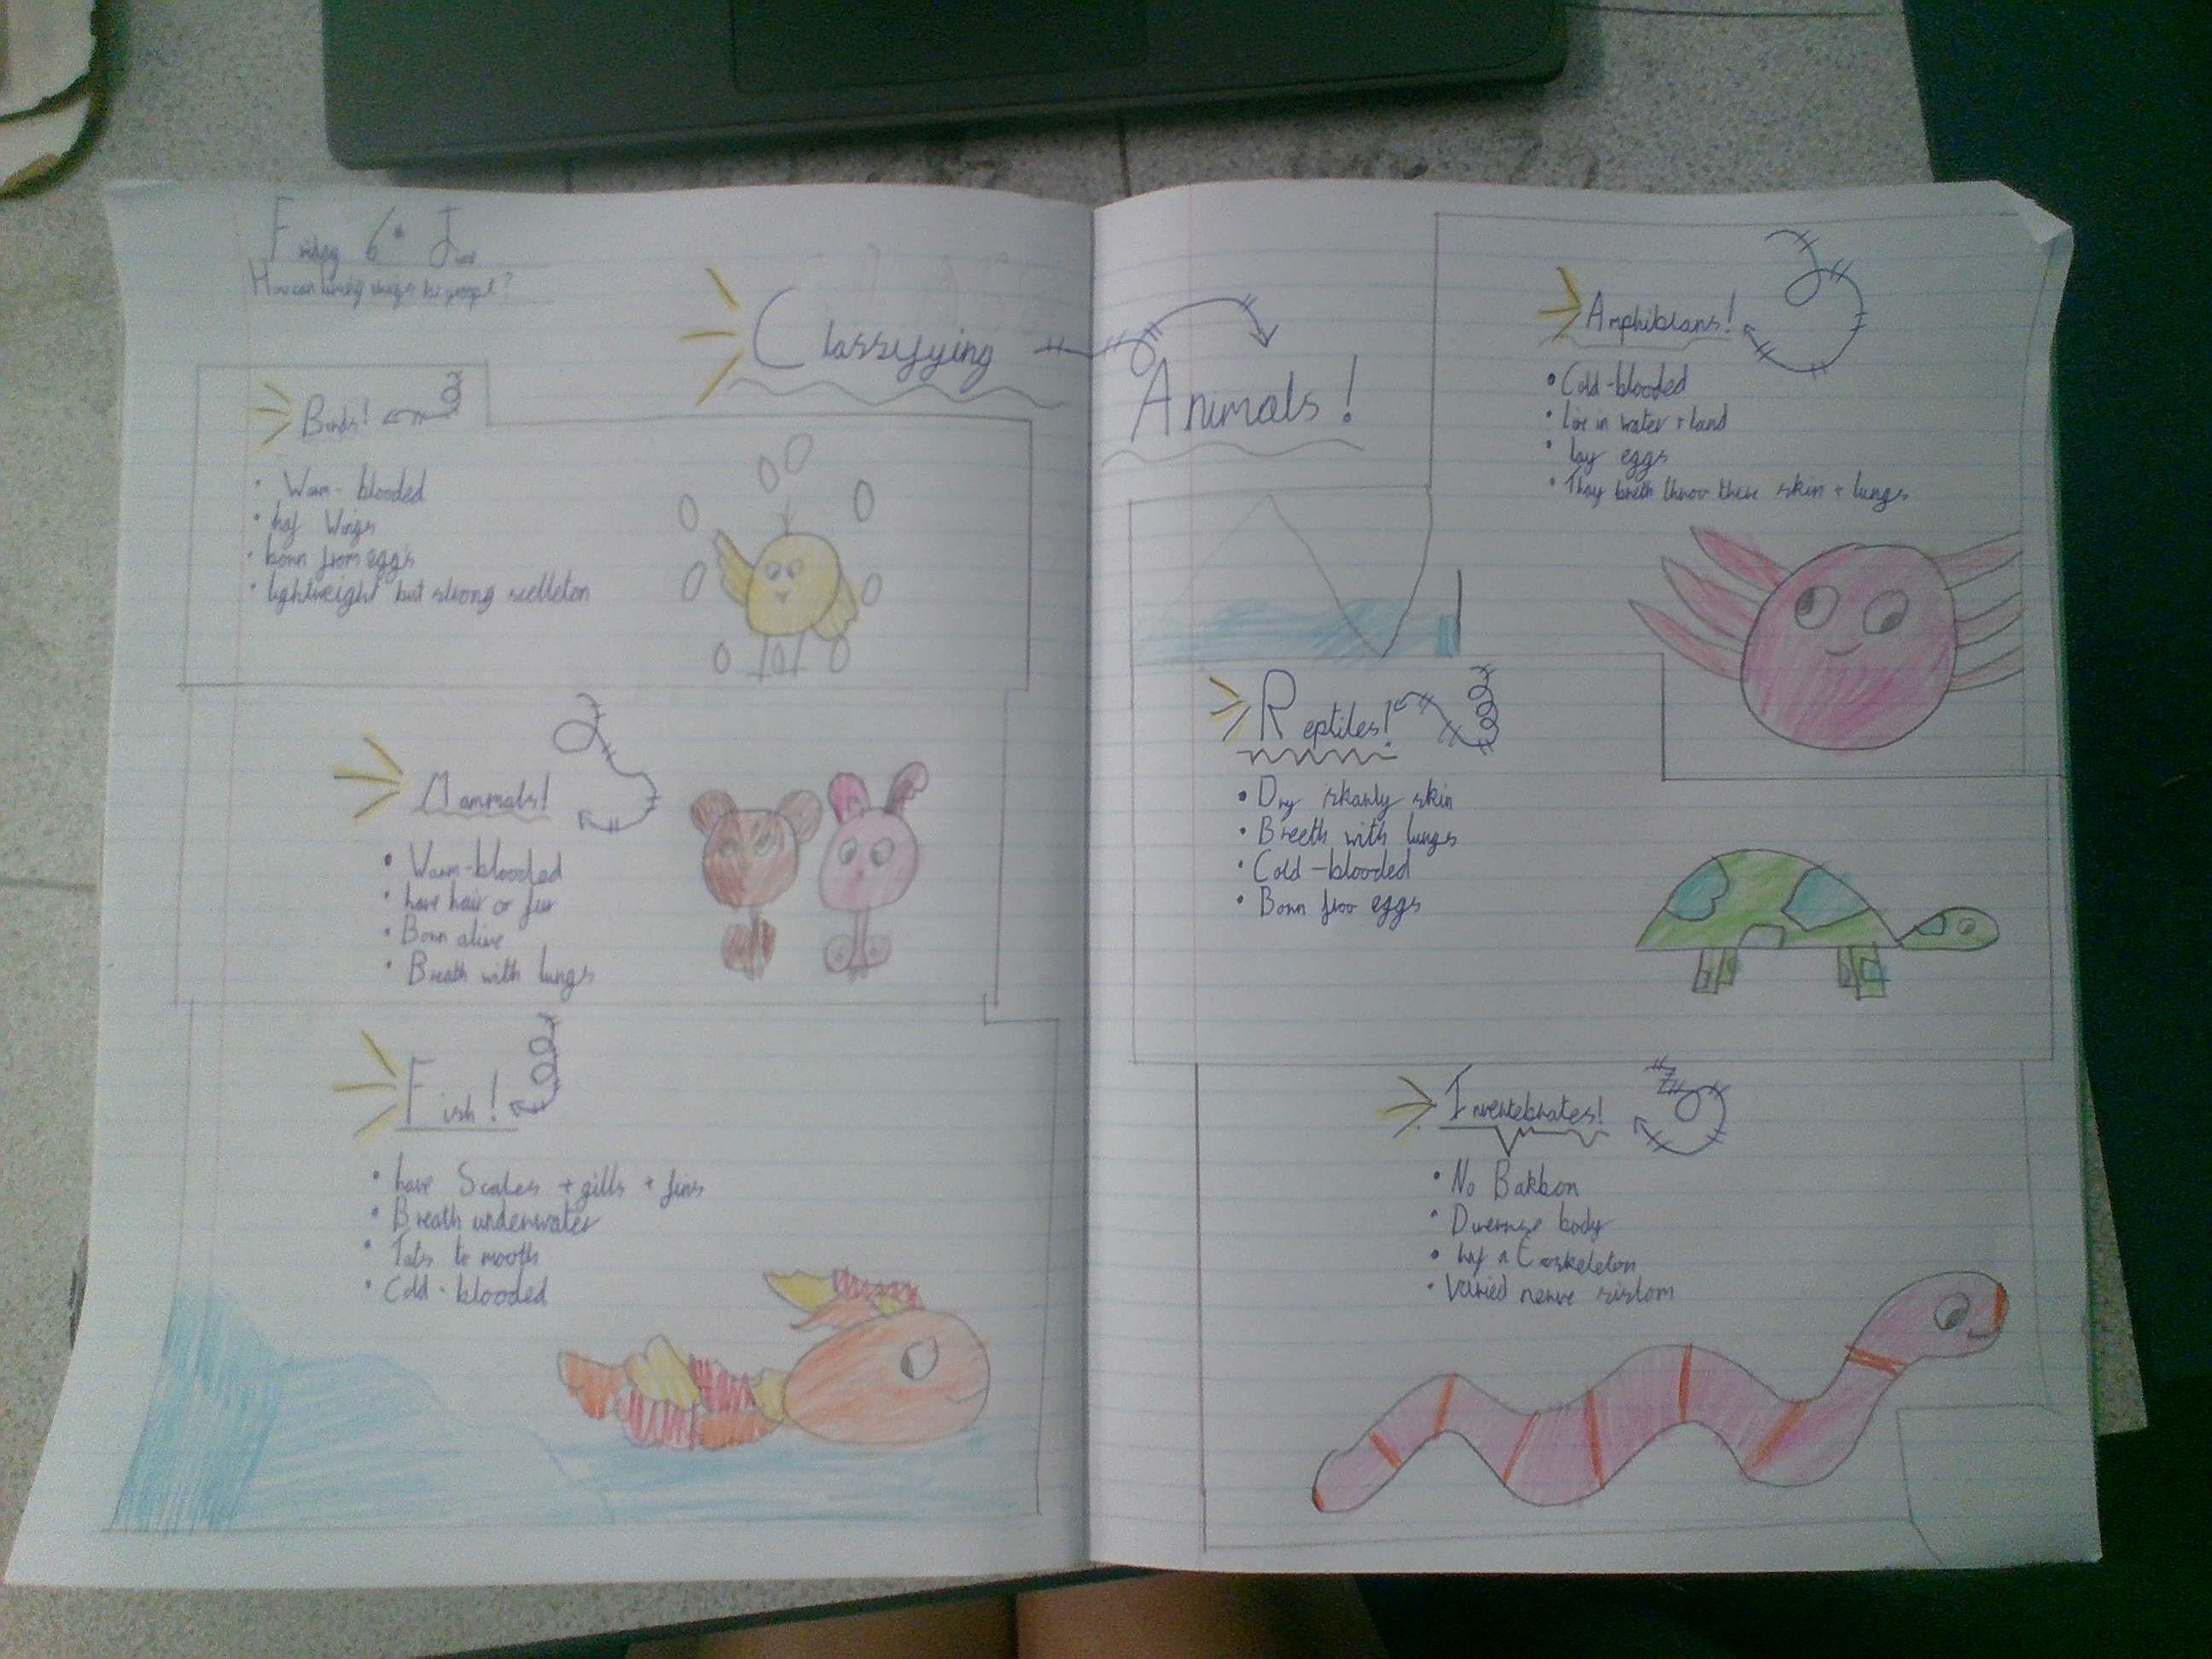 6th
Classifying
Animals!
Birds!
• Warm-blooded
• haf Wings
• born from eggs
• lightweight but strong scelleton
Mammals!
• Warm-blooded
• have hair or fur
• Born alive
• Breath with lungs
Fish!
• have Scales + gills + fins
• Breath underwater
• to
• Cold-blooded
Amphibians!
• Cold-blooded
• Live in water + land
• lay eggs
• They breth throo there skin + lungs
Reptiles!
• Dry skin
• Breeth with lungs
• Cold-blooded
• Born froo eggs
Invertebrates!
• No Bakbon
• body
• haf a Exskeleton
• Varied nerve sistom